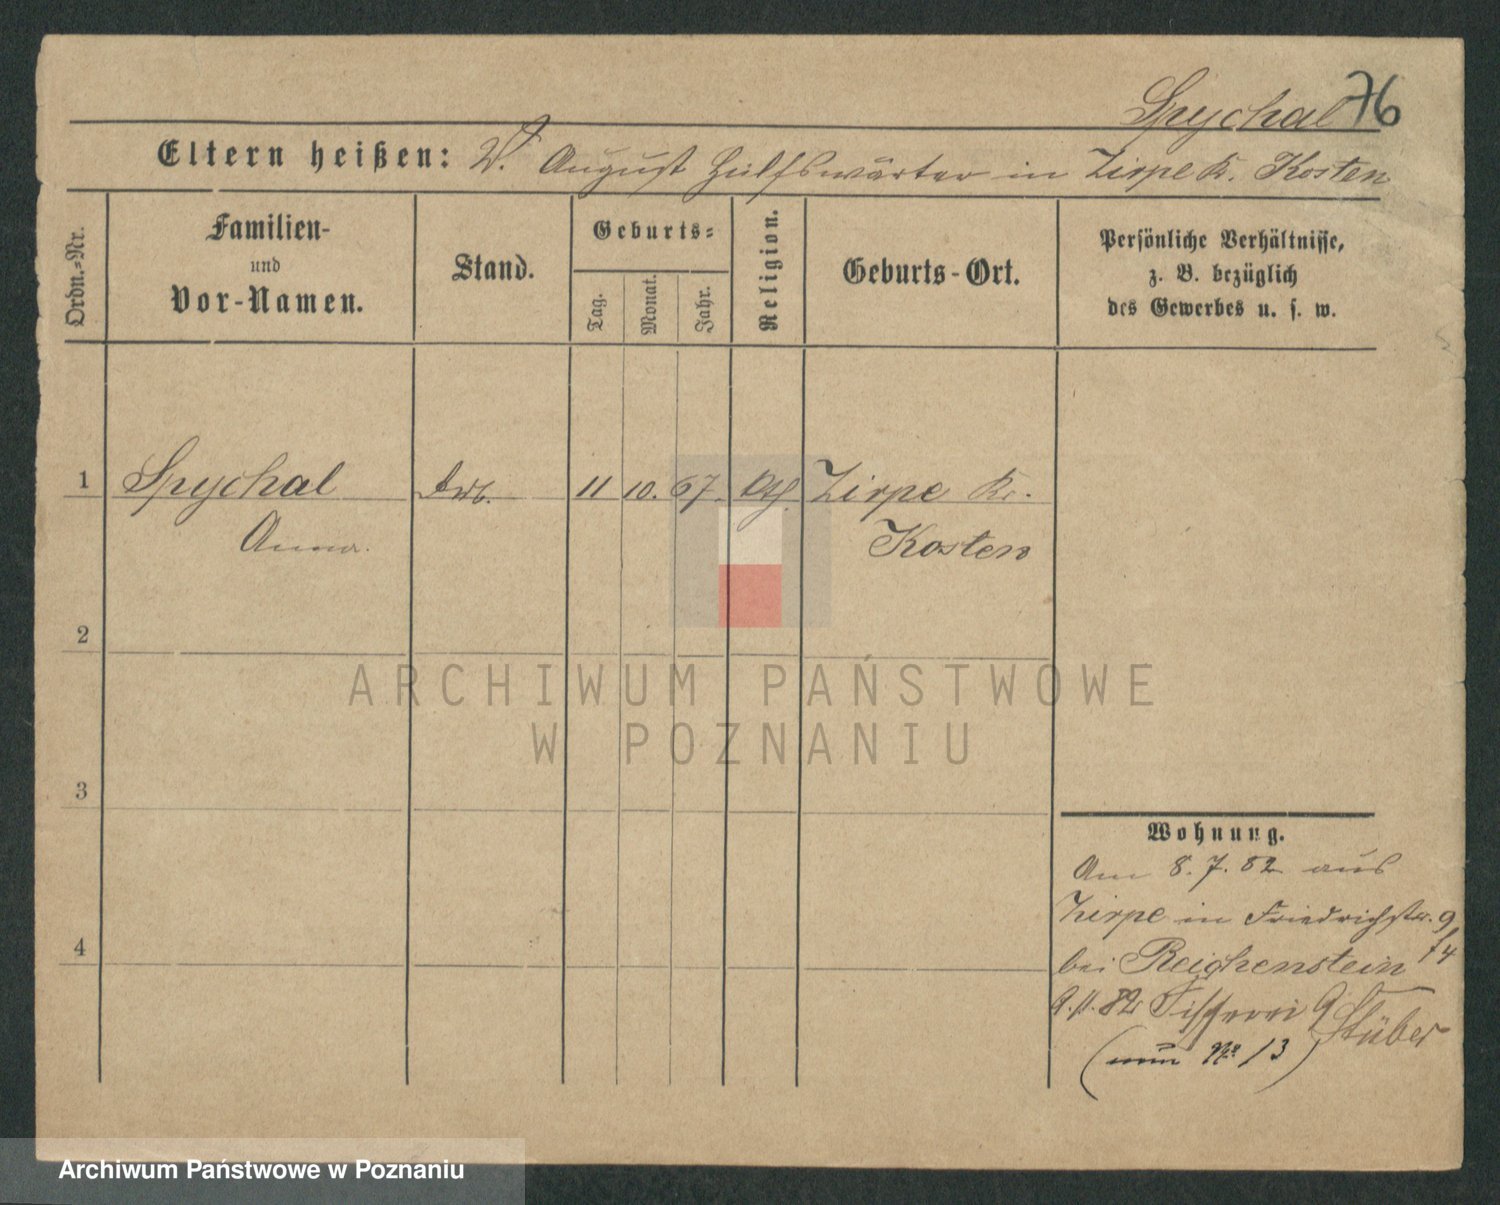 Spychal 76
Eltern heißen: V. August Hülfswärter in Zirpe Kr. Kosten
Ordn.-Nr.
Familien-
und
Vor-Namen.
Stand.
Geburts-
Tag.
Monat.
Jahr.
Religion.
Geburts-Ort.
Persönliche Verhältnisse,
z. B. bezüglich
des Gewerbes u. s. w.
1 Spychal 11 10. 67. kth. Zirpe Kr.
Anna. Kosten
2
3
4
Wohnung.
Am 8. 7. 82 aus
Zirpe in Friedrichstr. 9
bei Reichenstein
82 Fischerei 9 Stüber
(nun No 13)
ARCHIWUM PAŃSTWOWE
W POZNANIU
Archiwum Państwowe w Poznaniu